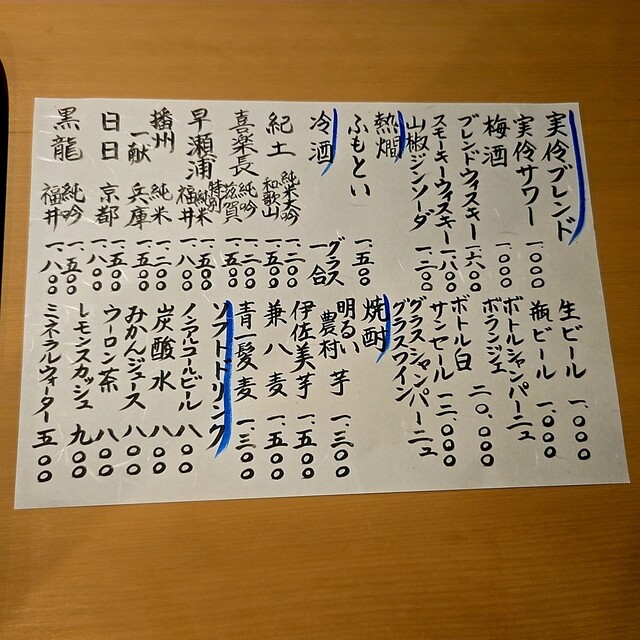 実伶ブレンド
実伶サワー 一、〇〇〇
梅酒 一、〇〇〇
ブレンドウィスキー 一、六〇〇
スモーキーウィスキー 一、八〇〇
山椒ジンソーダ 一、二〇〇
熱燗
ふもとい 一、五〇〇
冷酒 グラス 一合
紀土 純米大吟 和歌山 一、二〇〇 一、五〇〇
喜楽長 純吟 滋賀 一、五〇〇
早瀬浦 特別純米 福井 一、五〇〇 一、八〇〇
播州一献 純米 兵庫 一、二〇〇 一、五〇〇
日日 京都 一、五〇〇 一、八〇〇
黒龍 純吟 福井 一、五〇〇 一、八〇〇
生ビール 一、〇〇〇
瓶ビール 一、〇〇〇
ボトルシャンパーニュ
ボランジェ 二〇、〇〇〇
ボトル白
サンセール 一二、〇〇〇
グラスシャンパーニュ
グラスワイン
焼酎
明るい農村 芋 一、三〇〇
伊佐美 芋 一、五〇〇
兼八 麦 一、五〇〇
青一髪 麦 一、三〇〇
ソフトドリンク
ノンアルコールビール 八〇〇
炭酸水 八〇〇
みかんジュース 八〇〇
ウーロン茶 八〇〇
レモンスカッシュ 九〇〇
ミネラルウォーター 五〇〇